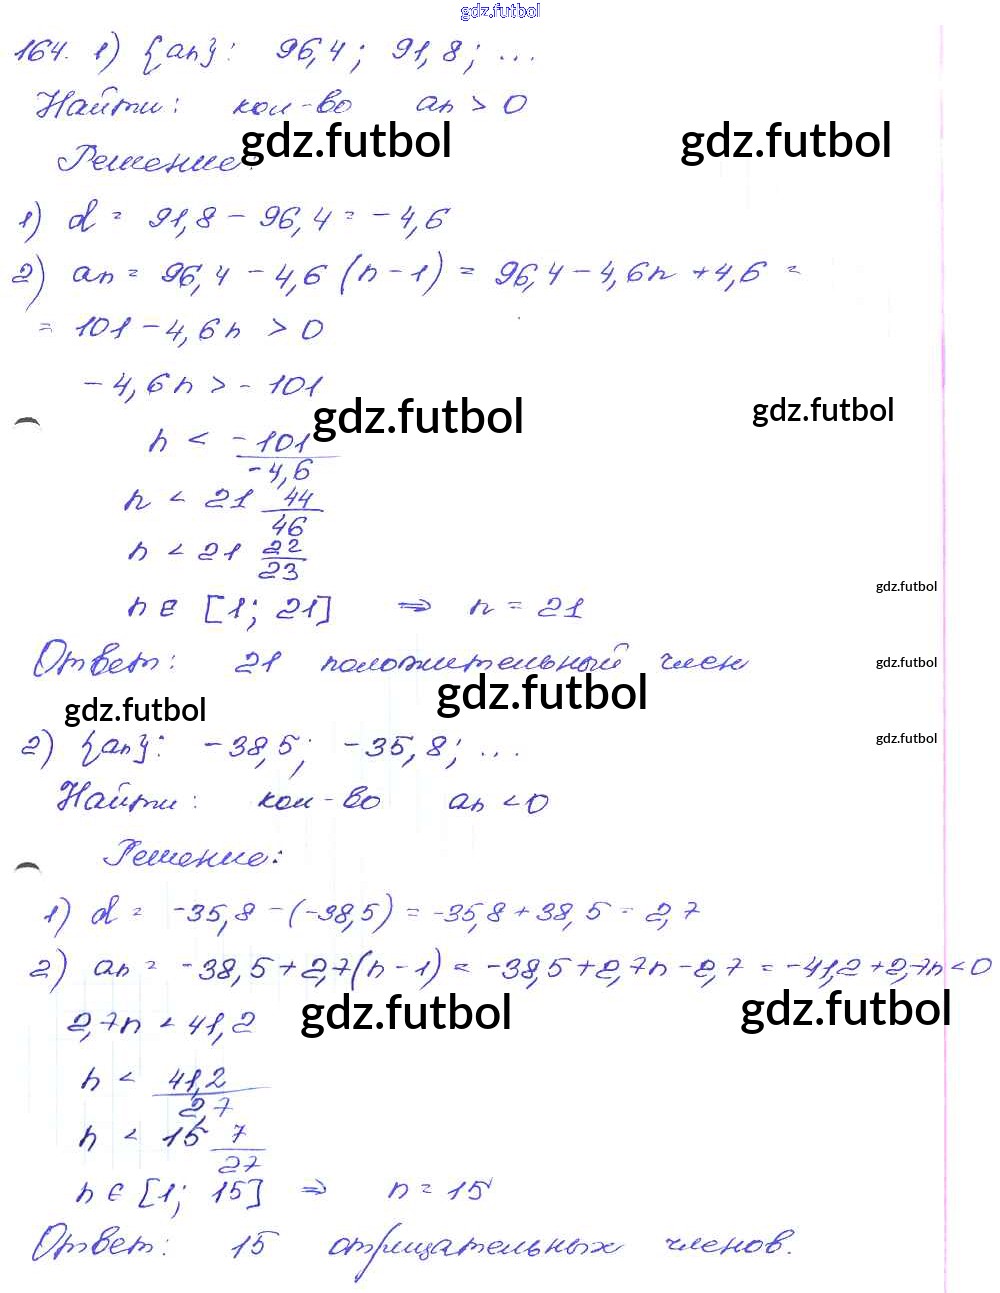 gdz.futbol
164. 1) {an}: 96,4; 91,8; ...
Найти: кол-во an > 0
gdz.futbol gdz.futbol
Решение:
1) d = 91,8 - 96,4 = -4,6
2) an = 96,4 - 4,6 (n-1) = 96,4 - 4,6n + 4,6 =
= 101 - 4,6n > 0
-4,6n > -101
gdz.futbol gdz.futbol
n < -101/-4,6
n < 21 44/46
n < 21 22/23
gdz.futbol
n ∈ [1; 21] ⇒ n = 21
Ответ: 21 положительный член
gdz.futbol
gdz.futbol
gdz.futbol
2) {an}: -38,5; -35,8; ...
gdz.futbol
Найти: кол-во an < 0
Решение:
1) d = -35,8 - (-38,5) = -35,8 + 38,5 = 2,7
2) an = -38,5 + 2,7(n-1) = -38,5 + 2,7n - 2,7 = -41,2 + 2,7n < 0
gdz.futbol gdz.futbol
2,7n < 41,2
n < 41,2/2,7
n < 15 7/27
n ∈ [1; 15] ⇒ n = 15
Ответ: 15 отрицательных членов.